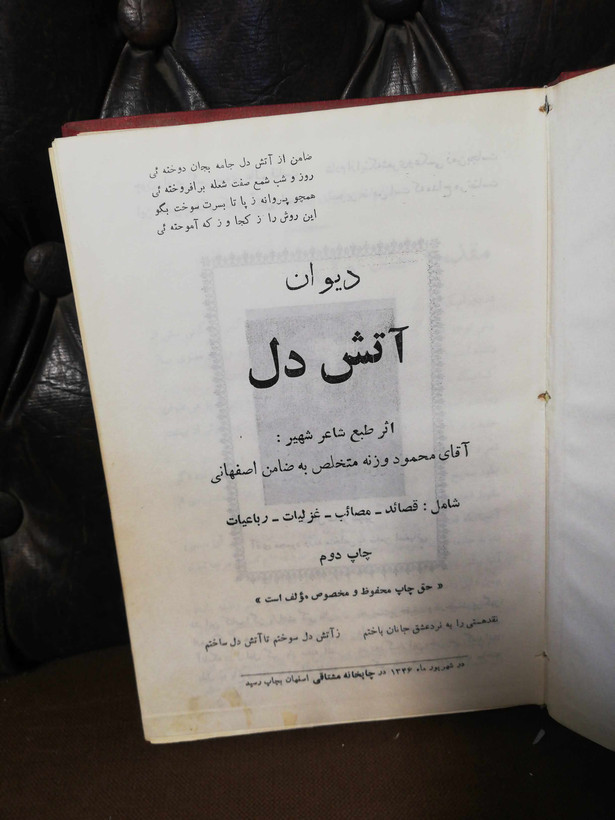 ضامن از آتش دل جامه بجان دوخته ئی
روز و شب شمع صفت شعله برافروخته ئی
همچو پروانه ز پا تا بسرت سوخت بگو
این روش را ز کجا و ز که آموخته ئی
دیوان
آتش دل
اثر طبع شاعر شهیر :
آقای محمود وزنه متخلص به ضامن اصفهانی
شامل : قصائد ـ مصائب ـ غزلیات ـ رباعیات
چاپ دوم
« حق چاپ محفوظ و مخصوص مؤلف است »
نقدهستی را به نردعشق جانان باختم ز آتش دل سوختم تا آتش دل ساختم
در شهریور ماه ۱۳۴۶ در چاپخانه مشتاقی اصفهان بچاپ رسید